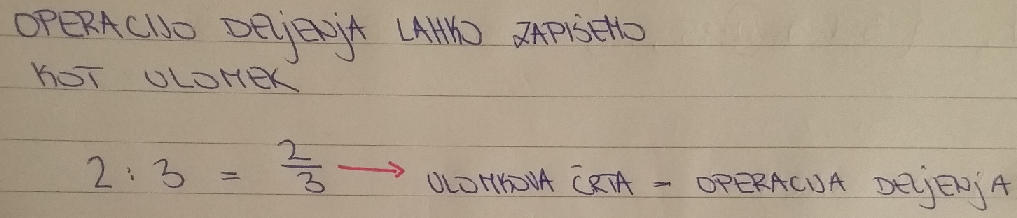 OPERACIJO DELJENJA LAHKO ZAPIŠEMO
KOT ULOMEK
2 : 3 = 2/3 → ULOMKOVA ČRTA – OPERACIJA DELJENJA